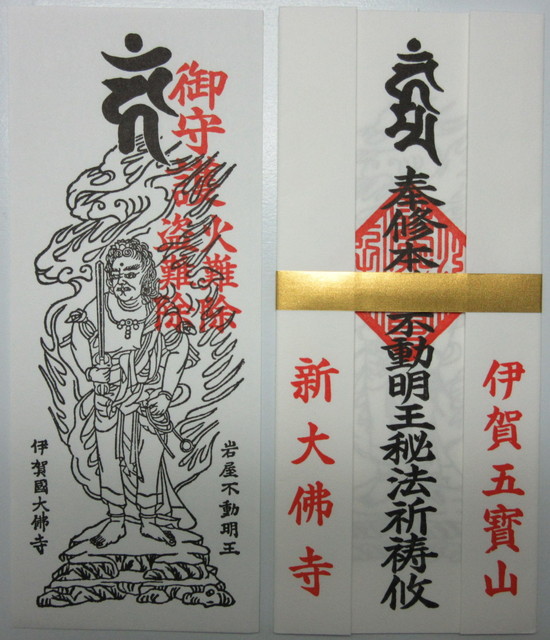 御守護
火難除
盗難除
岩屋不動明王
伊賀國大佛寺
伊賀五寶山
奉修本
不動明王秘法祈祷攸
新大佛寺